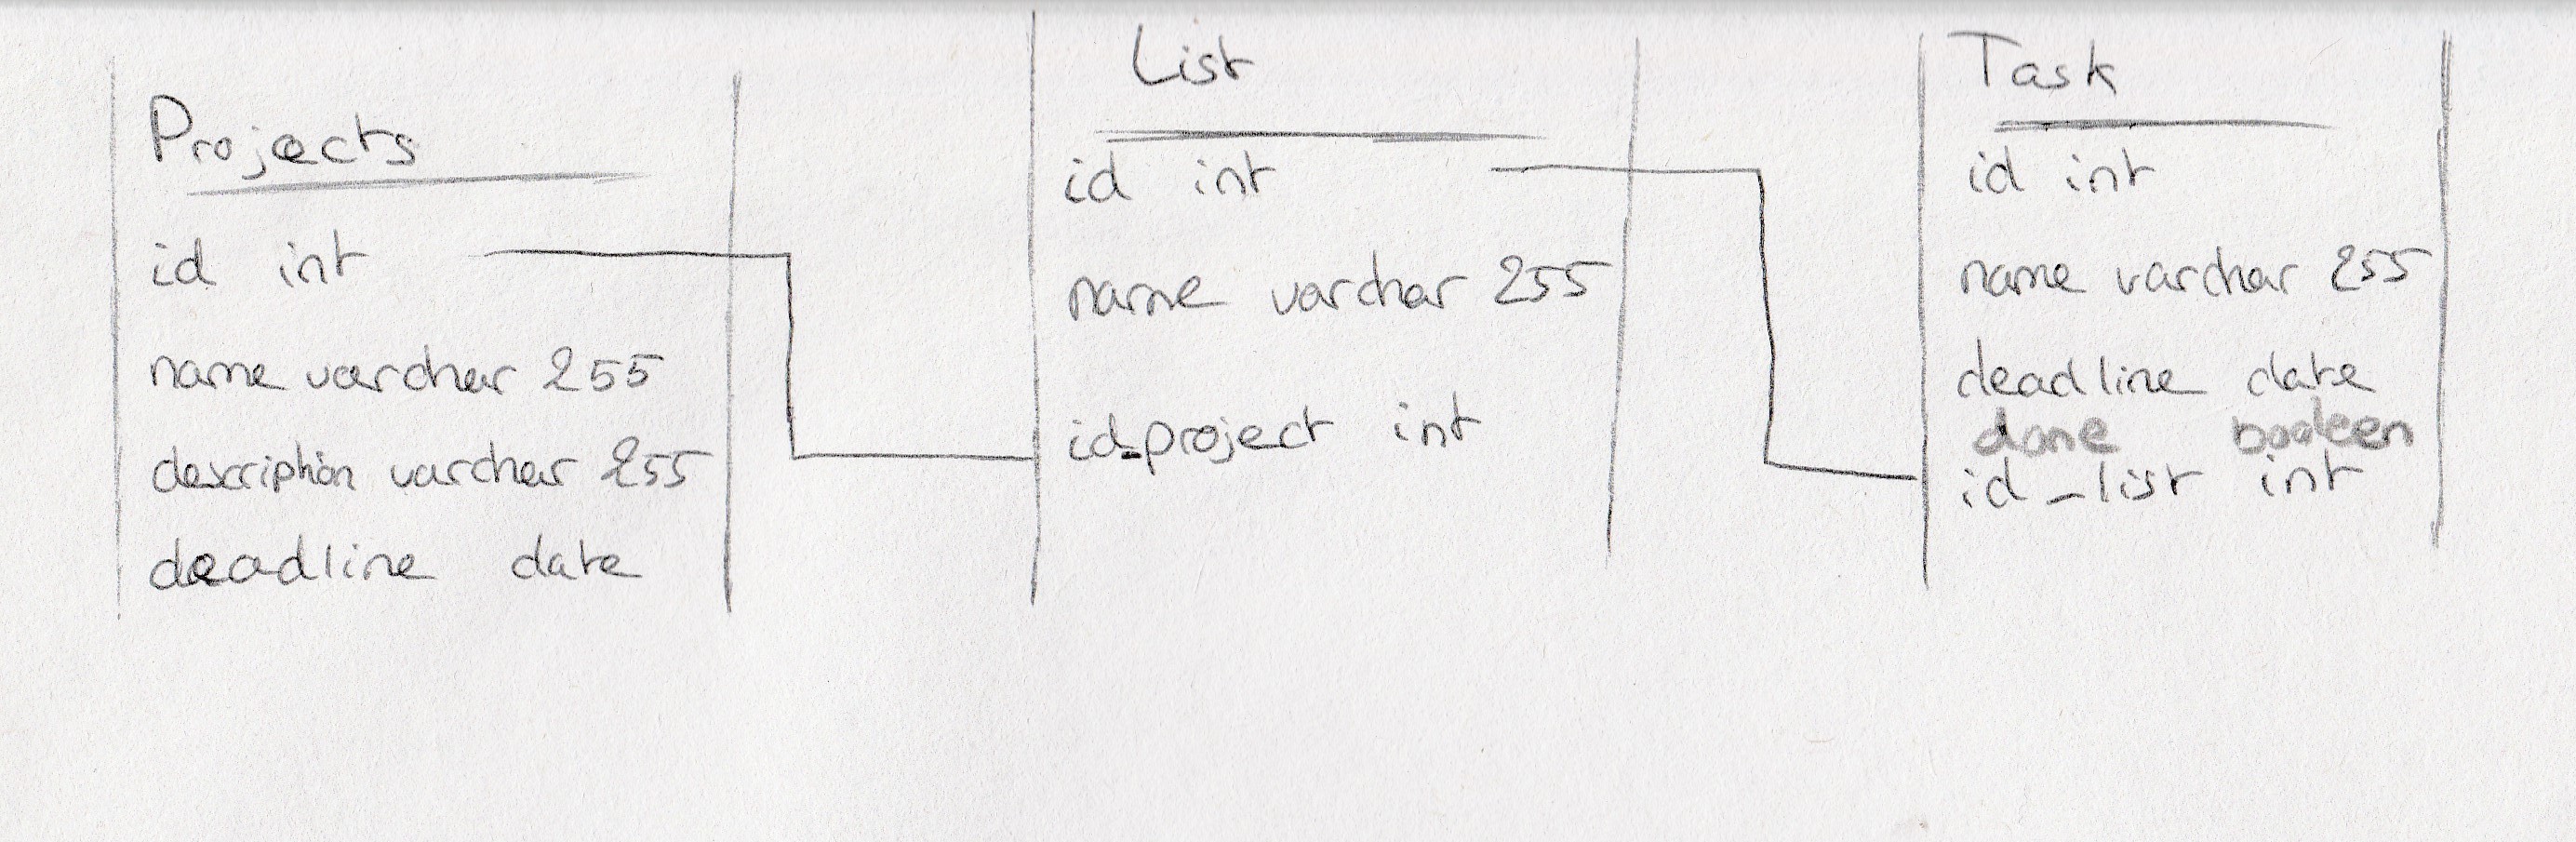 Projects
id int
name varchar 255
description varchar 255
deadline date
List
id int
name varchar 255
id_project int
Task
id int
name varchar 255
deadline date
done booleen
id_list int